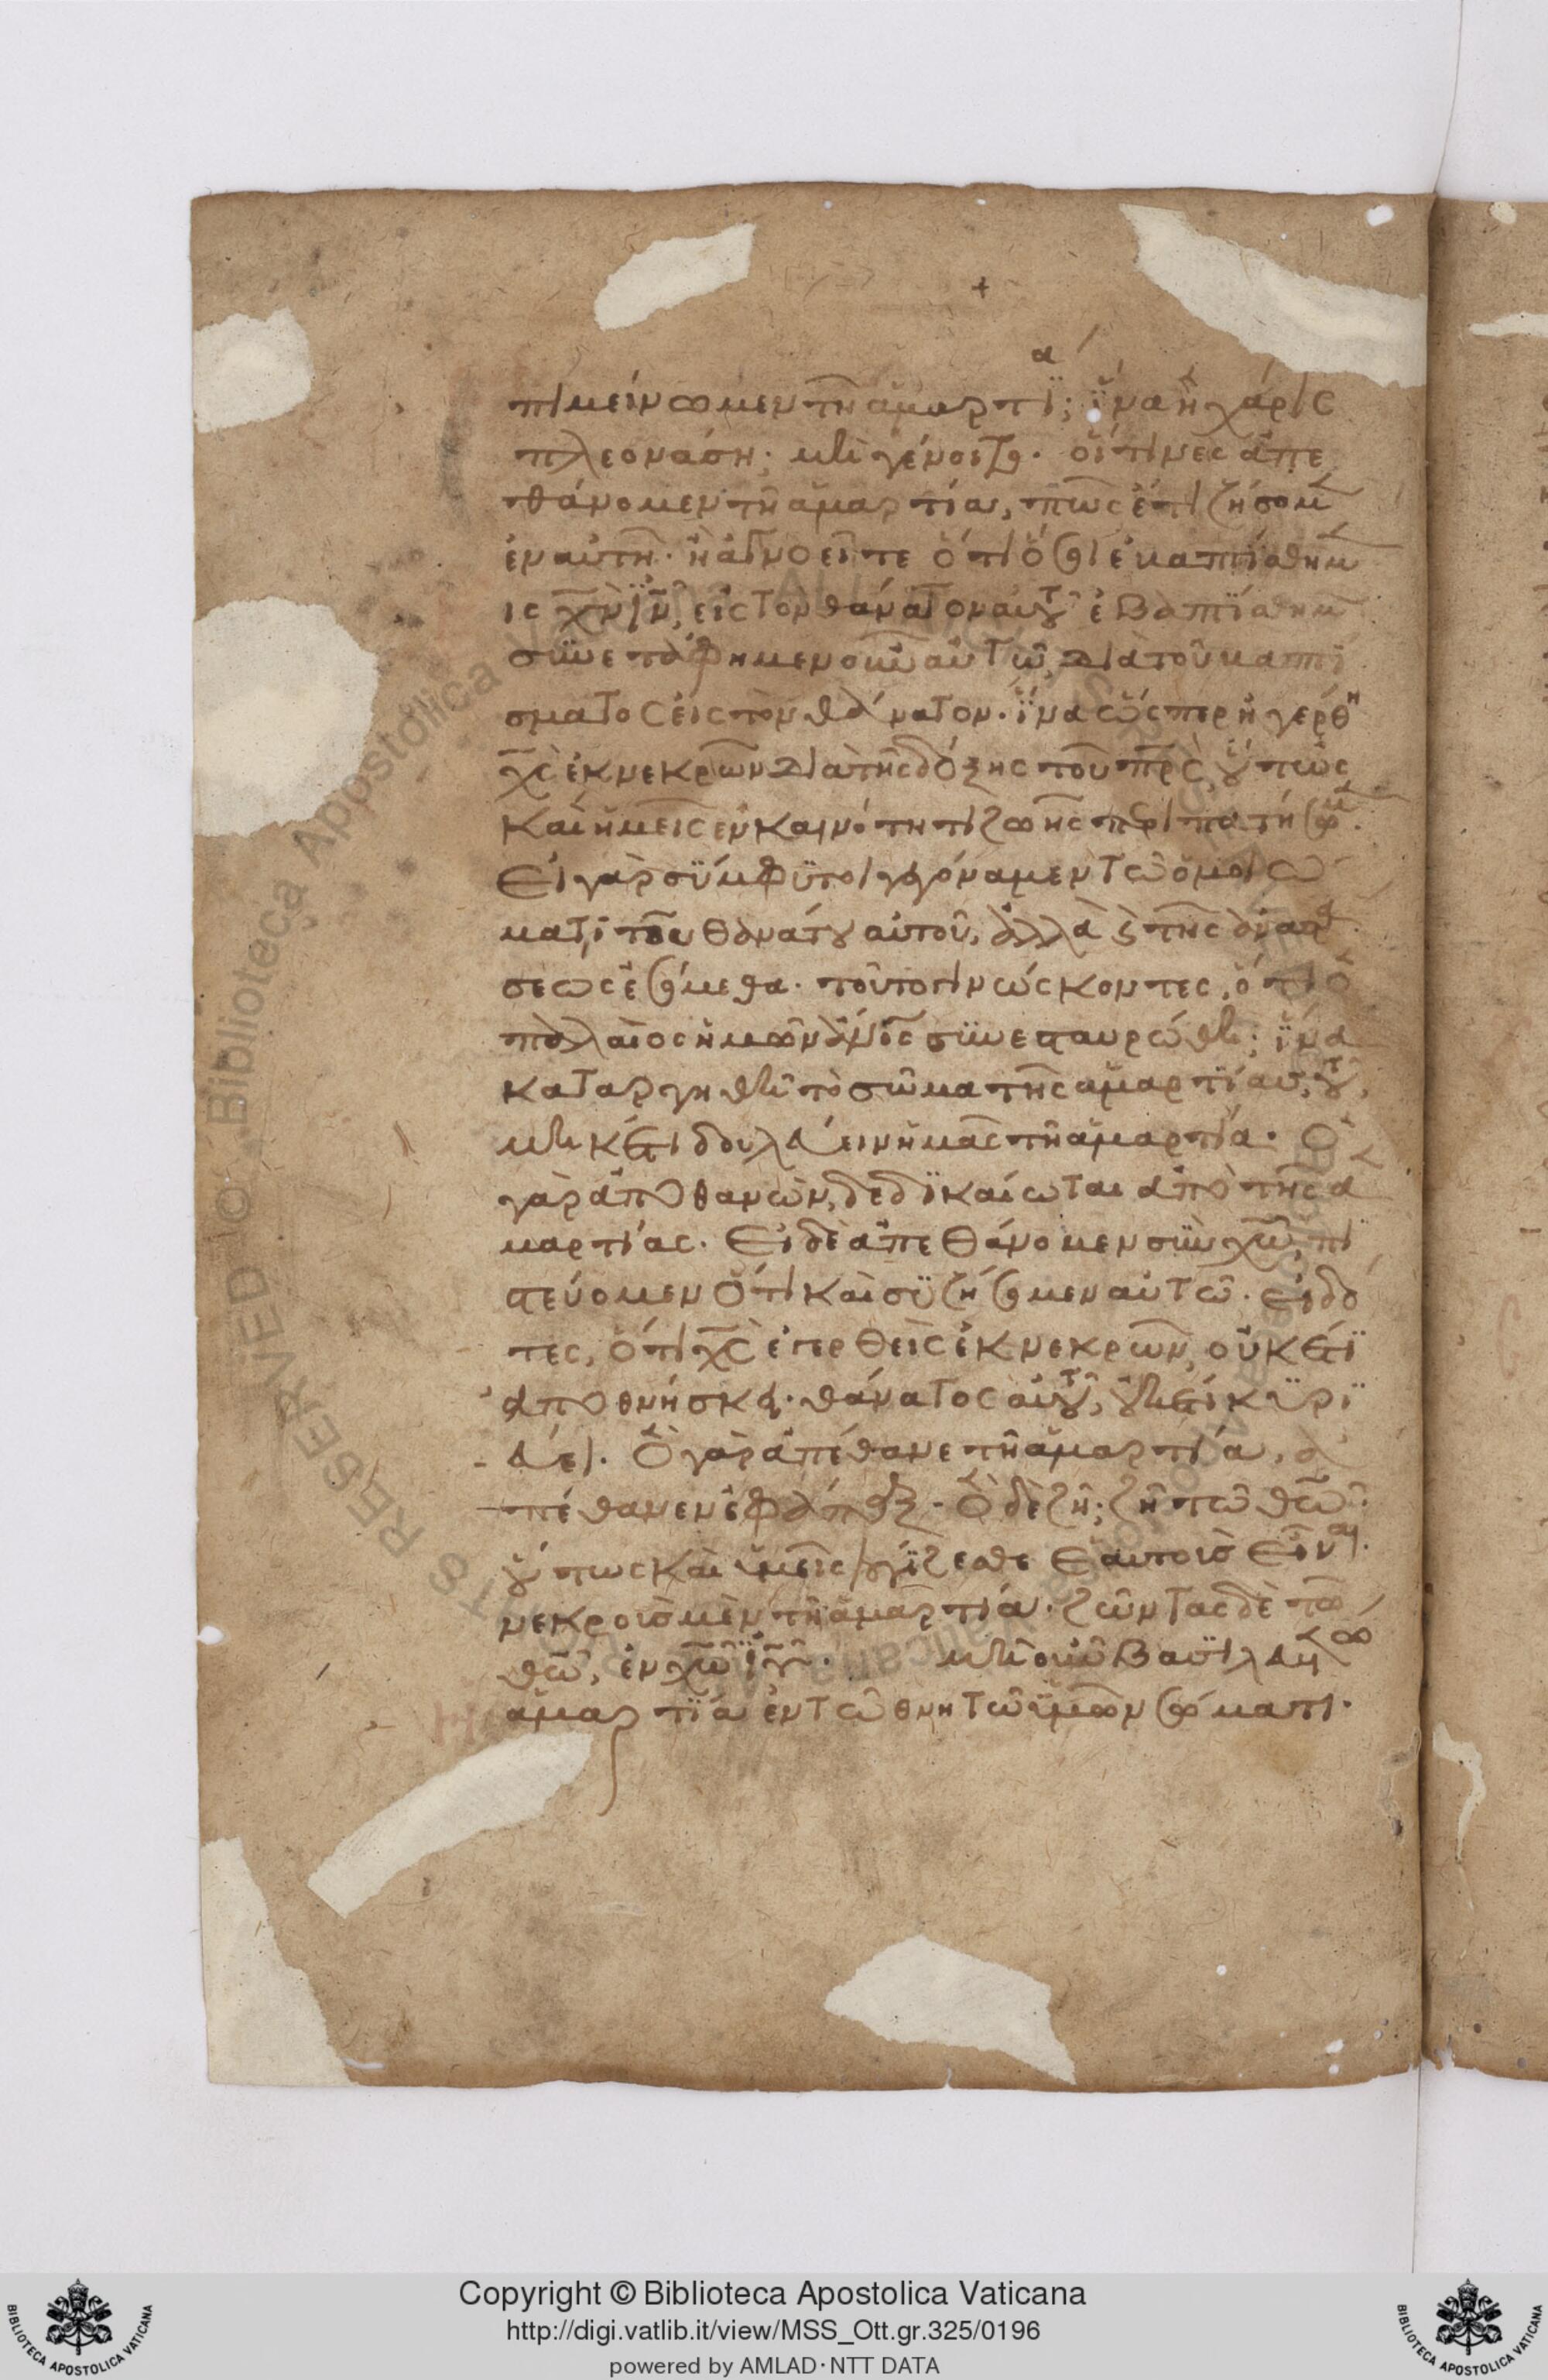 πιμείνωμεν τῆ ἁμαρτΐα; ἵνα ἡ χάρις
πλεονάση· μὴ γένοιτο. οἵτινες ἀπε
θάνομεν τῆ ἁμαρτία, πῶς ἔτι ζήσομ
ἐν αὐτῆ. ἢ ἀγνοεῖτε ὅτι ὅσοι ἐβαπτίσθημ
ις χ̅ν̅ ι̅ν̅, εἰς τὸν θάνατον αὐτοῦ ἐβαπτΐσθημ
συνετάφημεν οὖν αὐτῶ, διὰ τοῦ βαπτί
σματος εἰς τὸν θάνατον. ἵνα ὥσπερ ἠγέρθη
χ̅ς̅ ἐκ νεκρῶν διὰ τῆς δόξης τοῦ π̅ρ̅ς̅, οὕτως
καὶ ἡμεῖς ἐν καινότητι ζωῆς περιπατήσωμ.
Εἰ γὰρ σύμφυτοι γεγόναμεν τῶ ὁμοιώ
ματι τοῦ θανάτου αὐτοῦ, ἀλλὰ καὶ τῆς ἀναστά
σεως ἐσόμεθα. τοῦτο γινώσκοντες, ὅτι ὁ
παλαιὸς ἡμῶν α̅ν̅ο̅ς̅ συνεσταυρώθη; ἵνα
καταργηθῆ τὸ σῶμα τῆς ἁμαρτΐας, τοῦ
μηκέτι δουλεύειν ἡμᾶς τῆ ἁμαρτία. Ὁ
γὰρ ἀποθανὼν, δεδϊκαίωται ἀπὸ τῆς ἁ
μαρτίας. Εἰ δὲ ἀπεθάνομεν σὺν χ̅ω̅, πι
στεύομεν ὅτι καὶ συζήσομεν αὐτῶ. εἰδό
τες, ὅτι χ̅ς̅ ἐγερθεὶς ἐκ νεκρῶν, οὐκέτϊ
ἀποθνήσκει. θάνατος αὐτοῦ, οὐκέτι κυρι
εύει. Ὃ γὰρ ἀπέθανε τῆ ἁμαρτία, ἀ
πέθανεν ἐφάπαξ. Ὃ δὲ ζῆ; ζῆ τῶ θ̅ω̅.
οὕτως καὶ ὑμεῖς λογίζεσθε ἑαυτοὺς εἶναι.
νεκροὺς μὲν τῆ ἁμαρτία. ζῶντας δὲ τῶ
θ̅ω̅, ἐν χ̅ω̅ ι̅υ̅. μὴ οὖν βασϊλευέτω
ἁμαρτΐα ἐν τῶ θνητῶ ὑμῶν σώματι.
Copyright © Biblioteca Apostolica Vaticana
http://digi.vatlib.it/view/MSS_Ott.gr.325/0196
powered by AMLAD·NTT DATA